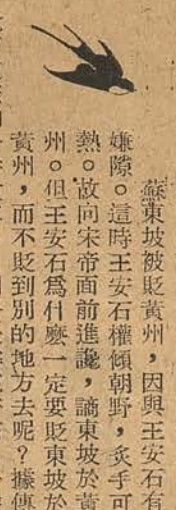 蘇東坡被貶黃州，因與王安石有
嫌隙。這時王安石權傾朝野，炙手可
熱。故向宋帝面前進讒，謫東坡於黃
州。但王安石爲什麼一定要貶東坡於
黃州，而不貶到別的地方去呢？據傳